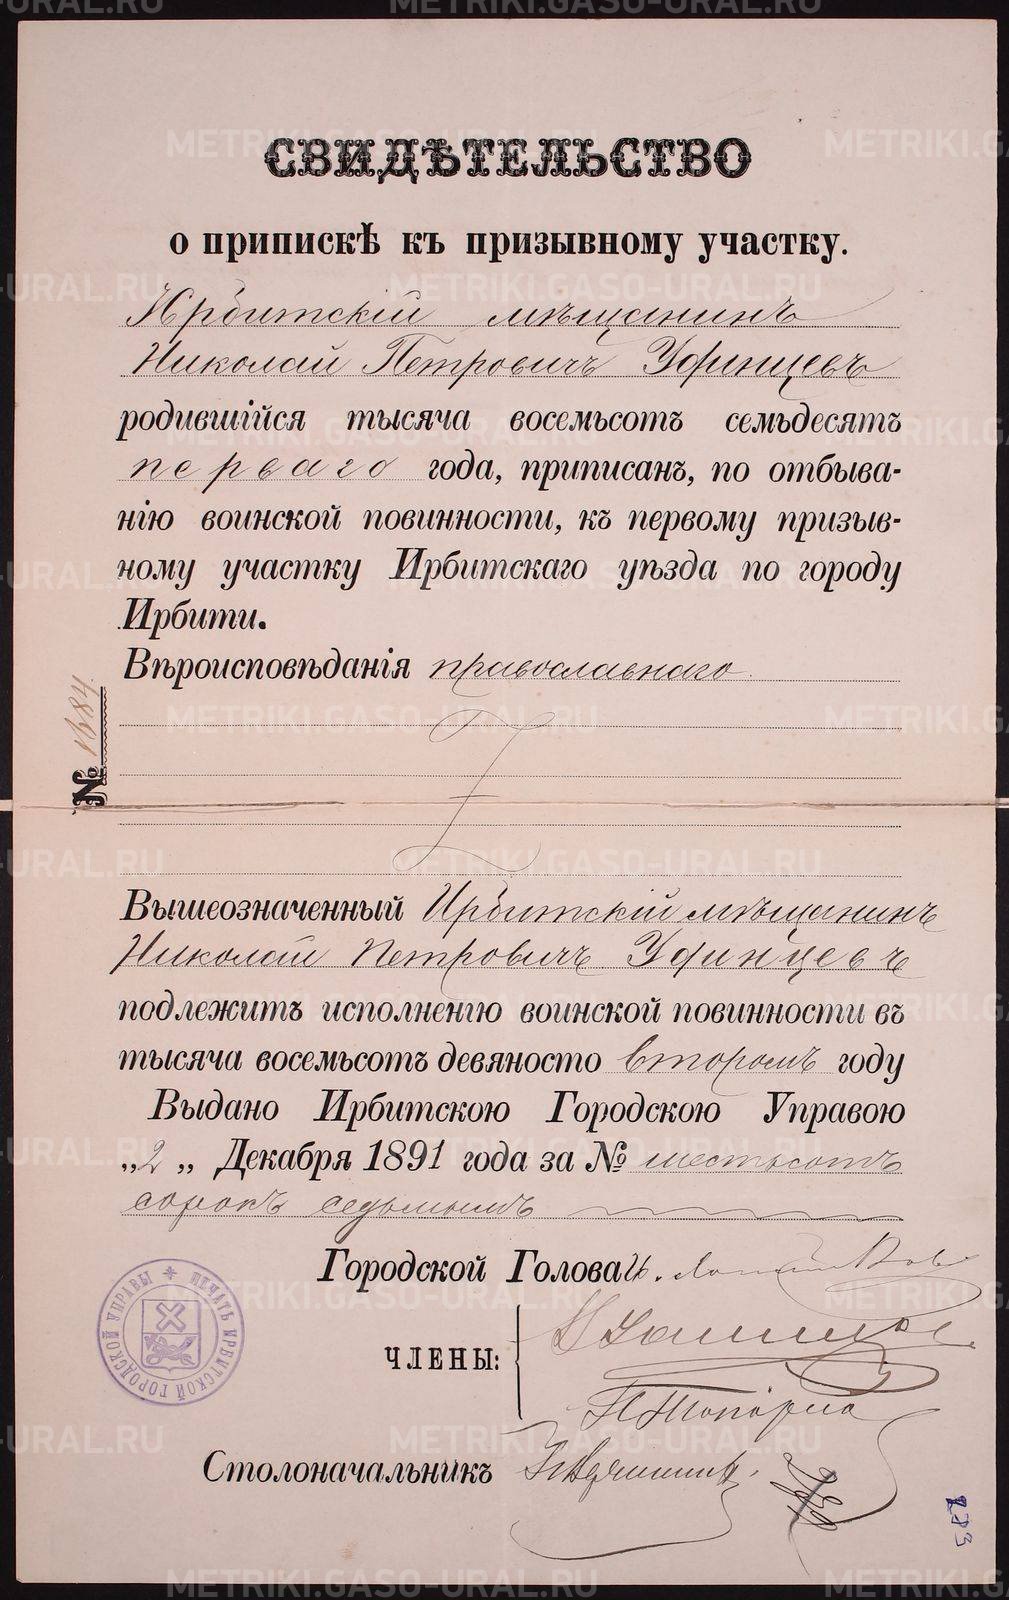 СВИДѢТЕЛЬСТВО
о припискѣ къ призывному участку.
Ирбитскій мѣщанинъ
Николай Петровичъ Уфинцевъ
родившійся тысяча восемьсотъ семьдесятъ
перваго года, приписанъ, по отбыва-
нію воинской повинности, къ первому призыв-
ному участку Ирбитскаго уѣзда по городу
Ирбити.
Вѣроисповѣданія православнаго
№ 1684
Вышеозначенный Ирбитскій мѣщанинъ
Николай Петровичъ Уфинцевъ
подлежитъ исполненію воинской повинности въ
тысяча восемьсотъ девяносто второмъ году
Выдано Ирбитскою Городскою Управою
„2„ Декабря 1891 года за № шестьсотъ
сорокъ седьмымъ
Городской Голова
ЧЛЕНЫ:
Столоначальникъ
ПЕЧАТЬ ИРБИТСКОЙ ГОРОДСКОЙ УПРАВЫ
METRIKI.GASO-URAL.RU